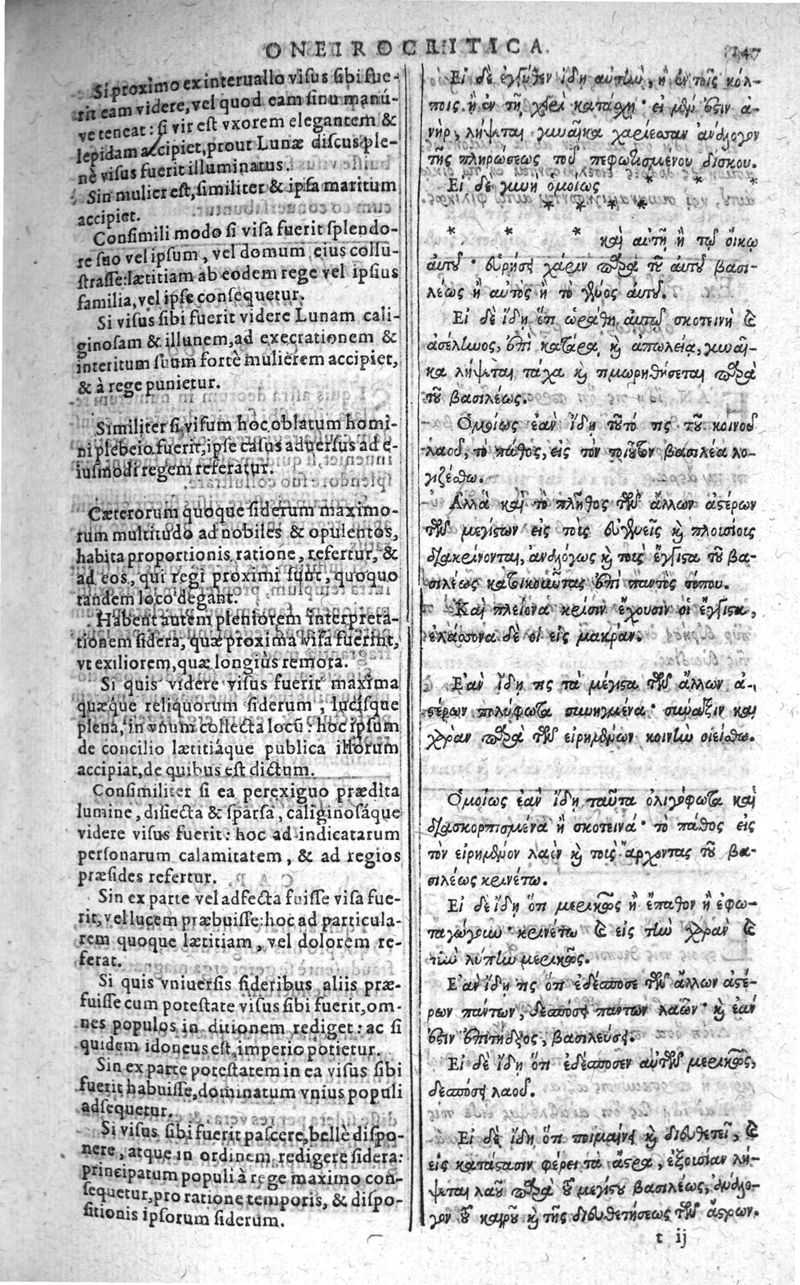 ONEIROCRITICA. 147
Si proximo ex interuallo visus sibi fue-
rit eam videre, vel quod eam sinu manú-
ve teneat: si vir est vxorem elegantem &
lepidam accipiet, prout Lunæ discus ple-
nè visus fuerit illuminatus.
Sin mulier est, similiter & ipsa maritum
accipiet.
Consimili modo si visa fuerit splendo-
re suo vel ipsum, vel domum eius collu-
strasse: lætitiam ab eodem rege vel ipsius
familia, vel ipse consequetur.
Si visus sibi fuerit videre Lunam cali-
ginosam & illunem, ad execrationem &
interitum suum fortè mulierem accipiet,
& à rege punietur.
Similiter si visum hoc oblatum homi-
ni plebeio fuerit, ipse casus aduersus ad e-
iusmodi regem referatur.
Cæterorum quoque siderum maximo-
rum multitudo ad nobiles & opulentos,
habita proportionis ratione, refertur, &
ad eos, qui regi proximi sunt, quoquo
tandem loco degant.
Habent autem pleniorem interpreta-
tionem sidera, quæ proxima visa fuerint,
vt exiliorem, quæ longiùs remota.
Si quis videre visus fuerit maxima
quæque reliquorum siderum, lucisque
plena, in vnum collecta locū: hoc ipsum
de concilio lætitiáque publica illorum
accipiat, de quibus est dictum.
Consimiliter si ea perexiguo prædita
lumine, disiecta & sparsa, caliginosáque
videre visus fuerit: hoc ad indicatarum
personarum calamitatem, & ad regios
præsides refertur.
Sin ex parte vel adfecta fuisse visa fue-
rit, vel lucem præbuisse: hoc ad particula-
rem quoque lætitiam, vel dolorem re-
ferat.
Si quis vniuersis sideribus aliis præ-
fuisse cum potestate visus sibi fuerit, om-
nes populos in ditionem rediget: ac si
quidem idoneus est, imperio potietur.
Sin ex parte potestatem in ea visus sibi
fuerit habuisse, dominatum vnius populi
adsequetur.
Si visus sibi fuerit pascere, bellè dispo-
nere, atque in ordinem redigere sidera:
principatum populi à rege maximo con-
sequetur, pro ratione temporis, & dispo-
sitionis ipsorum siderum.
Εἰ δὲ ἐγγύθεν ἴδῃ αὐτὴν, ἢ ἐν τοῖς κόλ-
ποις ἢ ἐν τῇ χειρὶ κατάχῃ· εἰ μὲν ἔστιν ἀ-
νὴρ, λήψεται γυναῖκα χαρίεσσαν ἀνάλογον
τῆς πληρώσεως τοῦ πεφωτισμένου δίσκου.
Εἰ δὲ γυνὴ ὁμοίως * *
* * * * *
* * * καὶ αὐτῇ ἢ τῷ οἴκῳ
αὐτοῦ· εὑρήσει χάριν παρὰ τοῦ αὐτοῦ βασι-
λέως ἢ αὐτὸς ἢ τὸ γένος αὐτοῦ.
Εἰ δὲ ἴδῃ ὅτι ὡράθη αὐτῷ σκοτεινὴ καὶ
ἀσέλινος, ἐπὶ κατάρα καὶ ἀπωλεία, γυναῖ-
κα λήψεται τάχα καὶ τιμωρηθήσεται παρὰ
τοῦ βασιλέως.
Ὁμοίως ἐὰν ἴδῃ τοῦτό τις τοῦ κοινοῦ
λαοῦ, τὸ πάθος, εἰς τὸν τοιοῦτον βασιλέα λο-
γιζέσθω.
Ἀλλὰ καὶ τὸ πλῆθος τῶν ἄλλων ἀστέρων
τῶν μεγίστων εἰς τοὺς εὐγενεῖς καὶ πλουσίους
διακρίνονται, ἀναλόγως καὶ τοὺς ἔγγιστα τοῦ βα-
σιλέως κατοικοῦντας ἐπὶ παντὸς τόπου.
Καὶ πλείονα κρίσιν ἔχουσιν οἱ ἔγγιστα,
ἐλάσσονα δὲ οἱ εἰς μακράν.
Ἐὰν ἴδῃ τις τὰ μέγιστα τῶν ἄλλων ἀ-
στέρων πολύφωτα συνηγμένα· σύναξιν καὶ
χαρὰν παρὰ τῶν εἰρημένων κοινὴν οἰέσθω.
Ὁμοίως ἐὰν ἴδῃ ταῦτα ὀλιγόφωτα καὶ
διασκορπισμένα ἢ σκοτεινά· τὸ πάθος εἰς
τὸν εἰρημένον λαὸν καὶ τοὺς ἄρχοντας τοῦ βα-
σιλέως κρινέτω.
Εἰ δὲ ἴδῃ ὅτι μερικῶς ἢ ἔπαθον ἢ ἐφω-
ταγώγουν· κρινέτω καὶ εἰς τὴν χαρὰν καὶ
τὴν λύπην μερικῶς.
Ἐὰν ἴδῃ τις ὅτι ἐδέσποσε τῶν ἄλλων ἀστέ-
ρων πάντων, δεσπόσει πάντων λαῶν· καὶ ἐὰν
ἔστιν ἐπιτήδειος, βασιλεύσει.
Εἰ δὲ ἴδῃ ὅτι ἐδέσποσεν αὐτῶν μερικῶς,
δεσπόσει λαοῦ.
Εἰ δὲ ἴδῃ ὅτι ποιμαίνει καὶ διευθετεῖ, καὶ
εἰς κατάστασιν φέρει τὰ ἄστρα, ἐξουσίαν λή-
ψεται λαοῦ παρὰ τοῦ μεγίστου βασιλέως, ἀνάλο-
γον τοῦ καιροῦ καὶ τῆς διευθετήσεως τῶν ἄστρων.
t ij